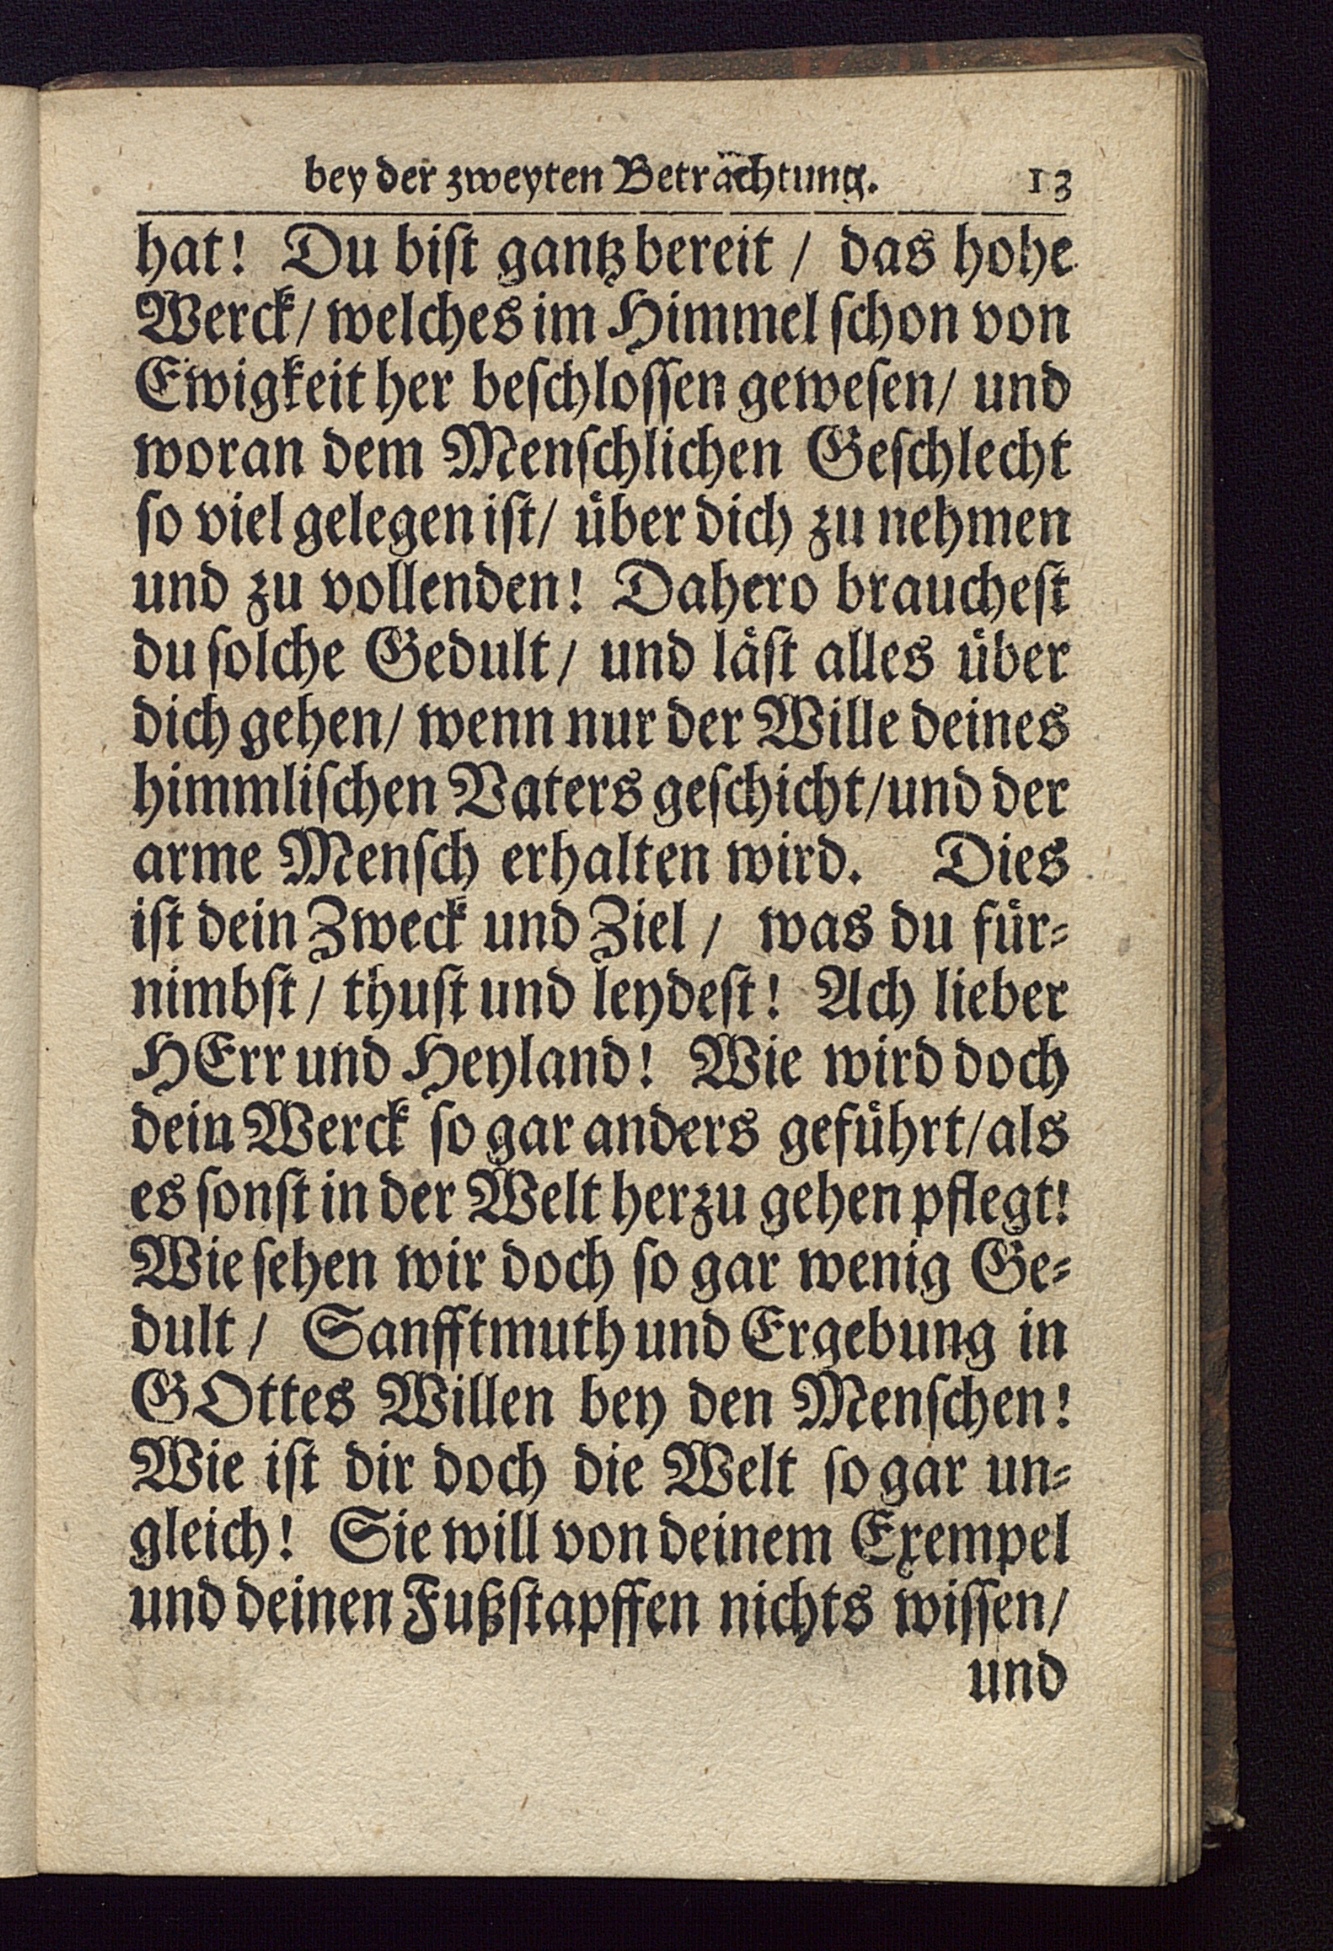 bey der zweyten Beträchtung. 13
hat! Du bist gantz bereit / das hohe
Werck / welches im Himmel schon von
Ewigkeit her beschlossen gewesen / und
woran dem Menschlichen Geschlecht
so viel gelegen ist / über dich zu nehmen
und zu vollenden! Dahero brauchest
du solche Gedult / und läst alles über
dich gehen / wenn nur der Wille deines
himmlischen Vaters geschicht / und der
arme Mensch erhalten wird. Dies
ist dein Zweck und Ziel / was du für-
nimbst / thust und leydest! Ach lieber
HErr und Heyland! Wie wird doch
dein Werck so gar anders geführt / als
es sonst in der Welt herzu gehen pflegt!
Wie sehen wir doch so gar wenig Ge-
dult / Sanfftmuth und Ergebung in
GOttes Willen bey den Menschen!
Wie ist dir doch die Welt so gar un-
gleich! Sie will von deinem Exempel
und deinen Fußstapffen nichts wissen /
und